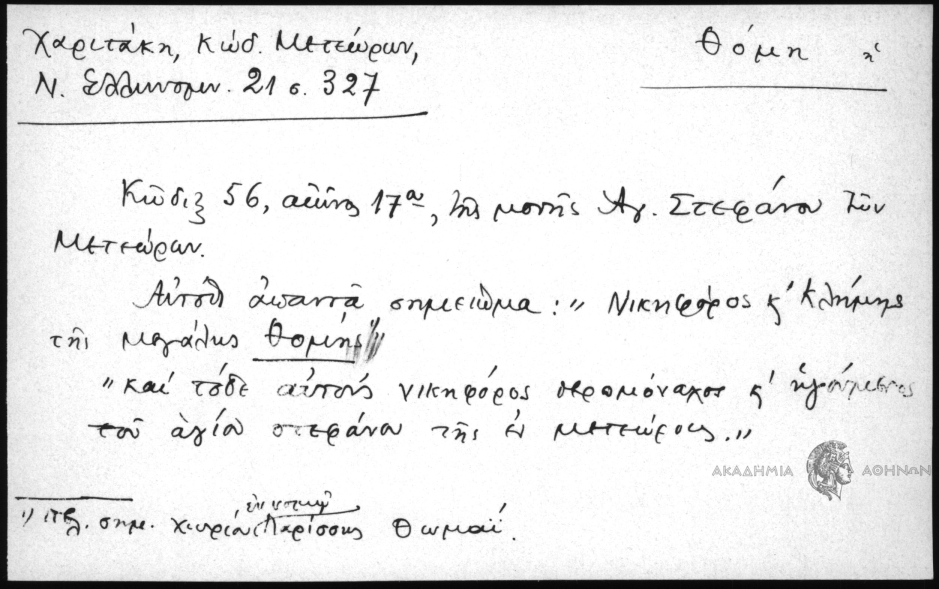 Χαριτάκη, Κώδ. Μετεώρων,
Ν. Ελληνομν. 21 σ. 327
Θόμη ἡ
Κῶδιξ 56, αἰῶνος 17ου, τῆς μονῆς Ἁγ. Στεφάνου τῶν
Μετεώρων.
Αὐτοῦ ἀπαντᾷ σημείωμα: „ Νικηφόρος κ' Κλήμης
τῆς μεγάλης Θομῆς
„ καί τόδε αὐτούς νικηφόρος ιερομόναχος κ' ἡγούμενος
τοῦ ἁγίου στεφάνου τῆς ἐν μετεώροις. „
ΑΚΑΔΗΜΙΑ ΑΘΗΝΩΝ
σημ. χωρίον Λαρίσσης Θωμαΐ.